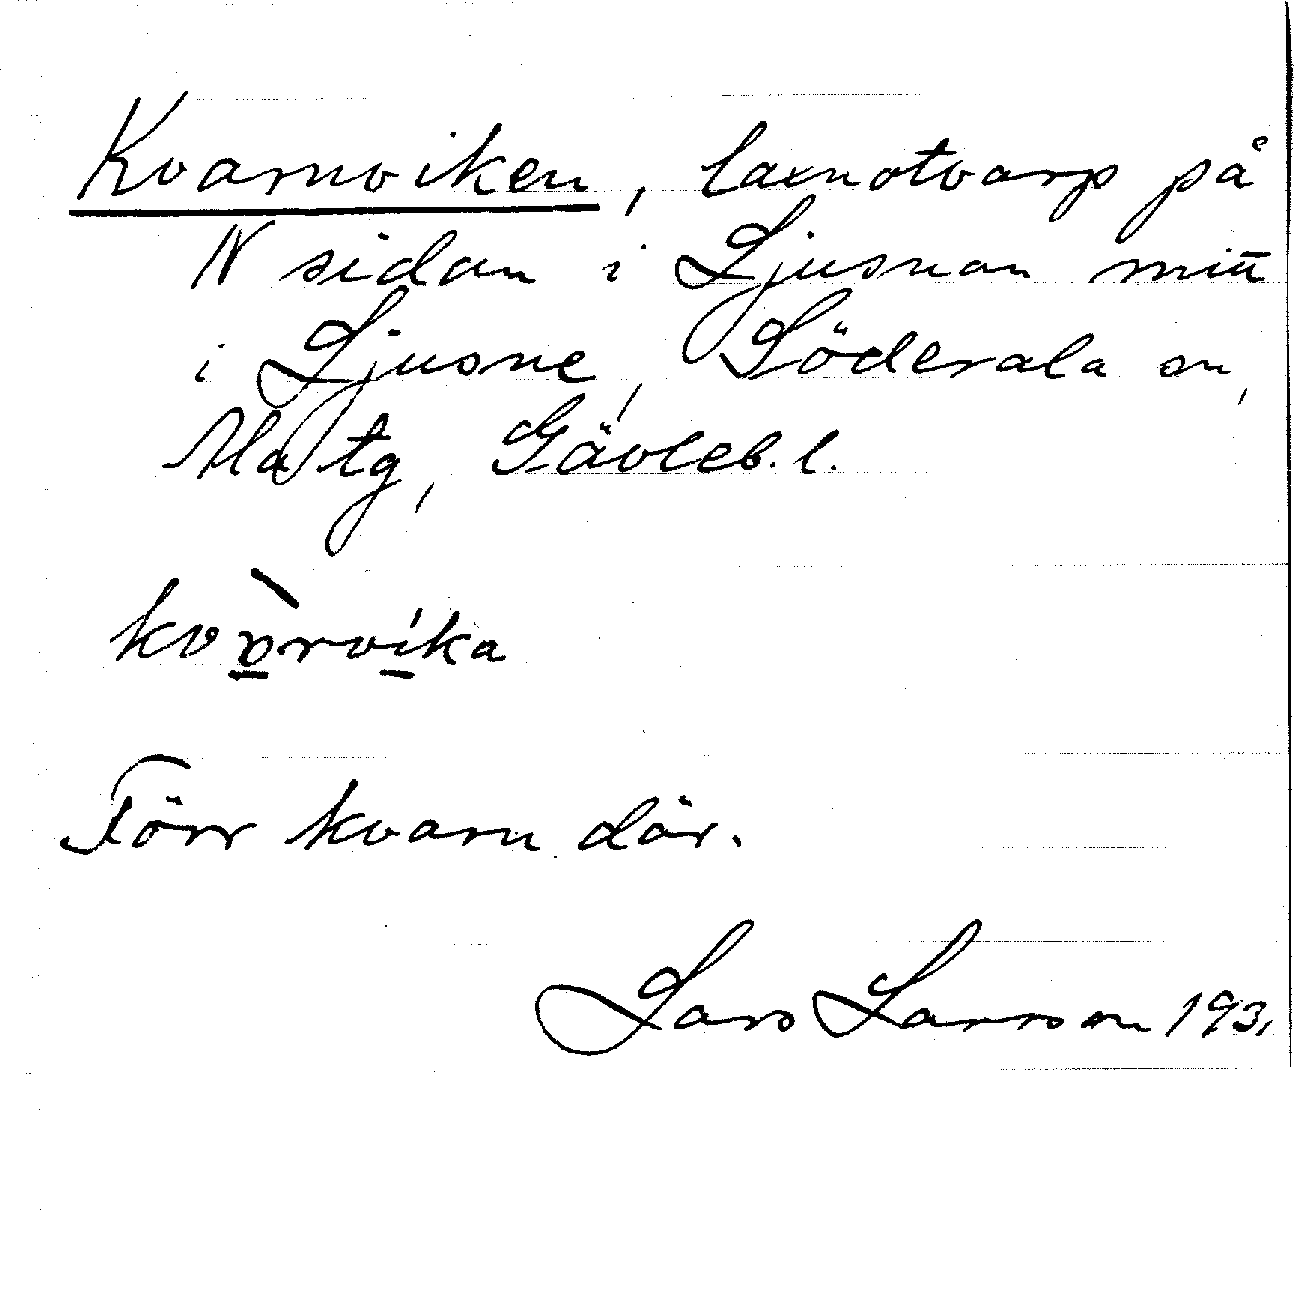 Kvarnviken, laxnotvarp på
N sidan i Ljusnan mitt
i Ljusne, Söderala sn,
Ala tg, Gävleb. l.
Förr kvarn där.
Lars Larsson 1931